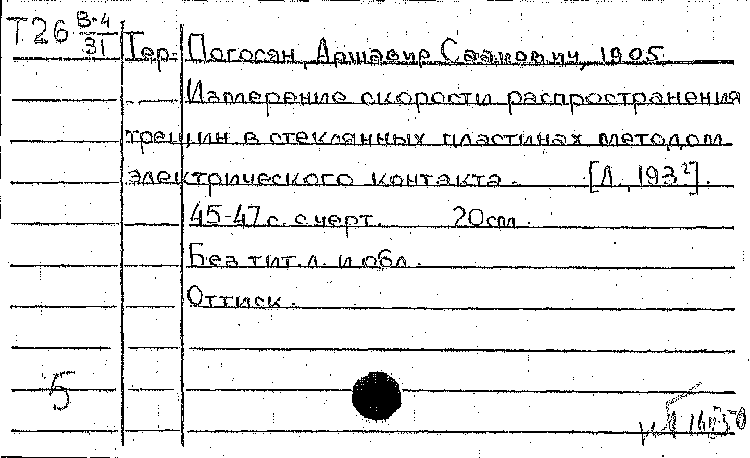 Т26 В-4/31
Тер-Погосян, Аршавир Саакович, 1905
Измерение скорости распространения
трещин в стеклянных пластинах методом
электрического контакта. [Л., 193?].
45-47 с. с черт. 20 см.
Без тит. л. и обл.
Оттиск.
5